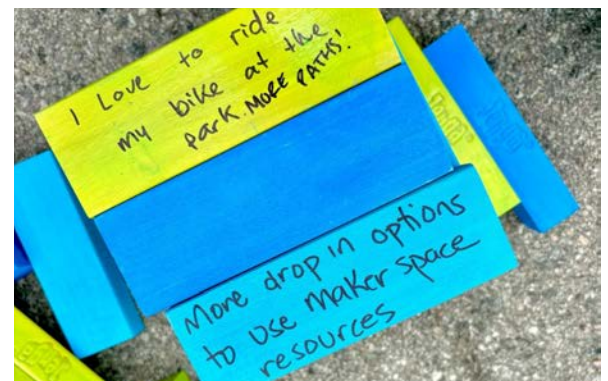 I Love to ride
my bike at the
park. MORE PATHS!
More drop in options
to use Maker space
resources
Jenga